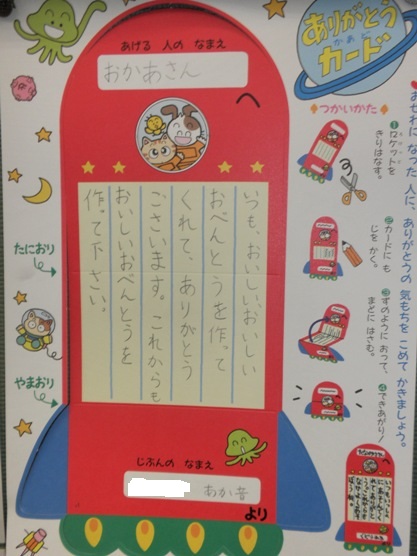 ありがとう
カード
あげる 人の なまえ
おかあさんへ
いつも、おいしいおいしい
おべんとうを作って
くれて、ありがとう
ございます。これからも
おいしいおべんとうを
作って下さい。
じぶんの なまえ
あか音
より
たにおり
やまおり
おせわに なった 人に、ありがとうの 気もちを こめて かきましょう。
つかいかた
①ロケットを
きりはなす。
②カードに も
じを かく。
③ずのように おって、
まどに はさむ。
④できあがり!